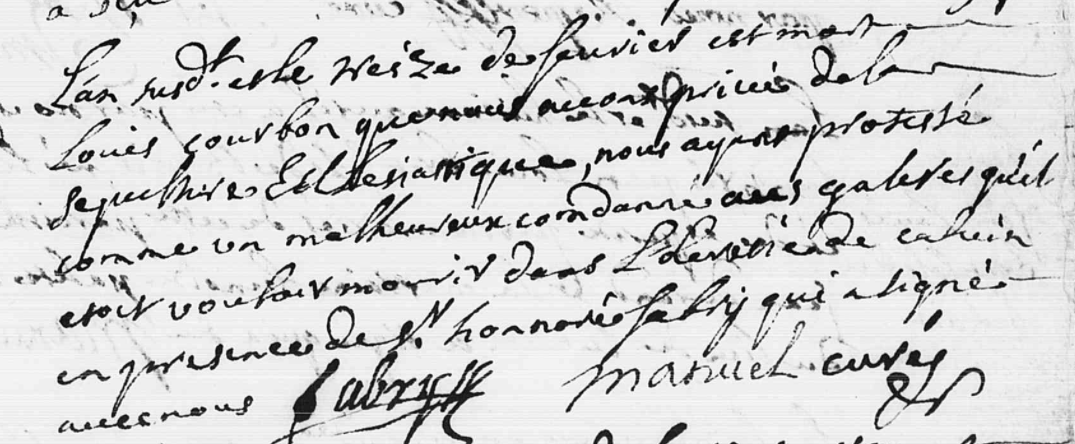 L'an susdt. et le treize de feurier est mort
Loüis courbon que nous auons priué de la
sepulture Ecclesiastique, nous ayant protesté
comme un malheureux comdanné aus galeres qu'il
etoit vouloir mourir dans L'hérésie de caluin
en presence de sr. honnoré fabry qui a signé
auec nous fabry manuel curé